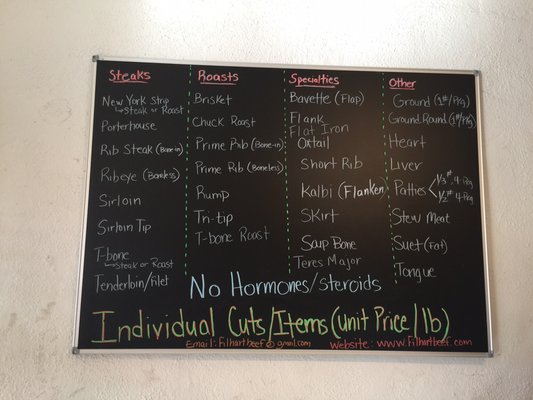 Steaks
New York Strip
↳ Steak or Roast
Porterhouse
Rib Steak (Bone-in)
Ribeye (Boneless)
Sirloin
Sirloin Tip
T-bone
↳ Steak or Roast
Tenderloin/filet
Roasts
Brisket
Chuck Roast
Prime Rib (Bone-in)
Prime Rib (Boneless)
Rump
Tri-tip
T-bone Roast
Specialties
Bavette (Flap)
Flank
Flat Iron
Oxtail
Short Rib
Kalbi (Flanken)
Skirt
Soup Bone
Teres Major
Other
Ground (1#/Pkg)
Ground Round (1#/Pkg)
Heart
Liver
Patties < 1/3#, 4-Pkg
1/2# 4-Pkg
Stew Meat
Suet (Fat)
Tongue
No Hormones/Steroids
Individual Cuts/Items (unit Price/lb)
Email: Filhartbeef@gmail.com
Website: www.Filhartbeef.com